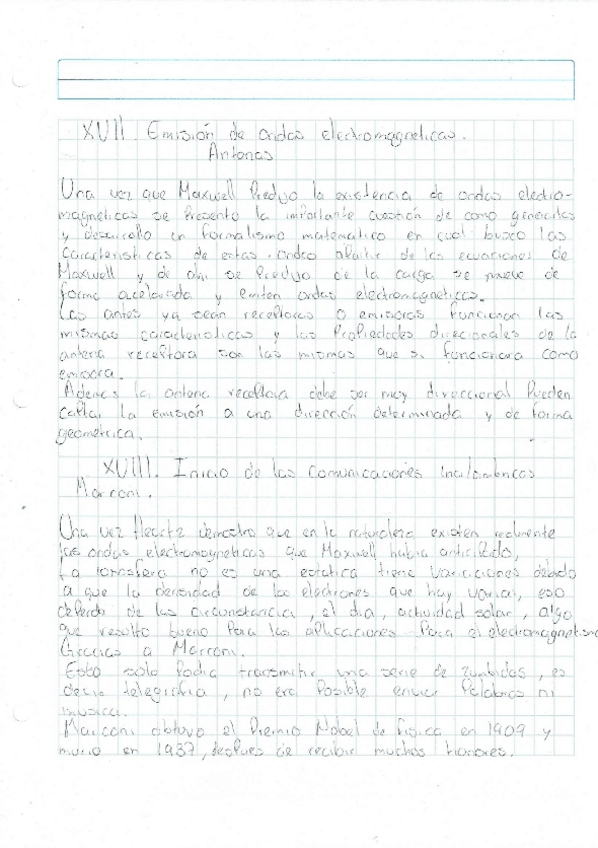 XVII. Emisión de ondas electromagneticas.
Antenas
Una vez que Maxwell Predijo la existencia de ondas electro-
magneticas se Presento la importante cuestión de como generarlas
y desarrollo un formalismo matematico en cual busco las
caracteristicas de estas ondas apartir de las ecuaciones de
Maxwell y de ahi se Predijo de la carga se mueve de
forma acelerada y emiten ondas electromagneticas.
Las antes ya sean receptoras o emisoras funcionan las
mismas caracteristicas y las Propiedades direcionales de la
antena receptora son las mismas que si funcionara como
emisora.
Ademas la antena receptora debe ser muy direccional Pueden
captar la emisión a una dirección determinada y de forma
geometrica.
XVIII. Inicio de las Comunicaciones Inalambricas
Marconi.
Una vez Heartz demostro que en la naturaleza existen realmente
las ondas electromagneticas que Maxwell habia anticipado,
La ionosfera no es una estatica tiene variaciones debido
a que la densidad de los electrones que hay varia, eso
depende de las circunstancia, el dia, actividad solar, algo
que resulto bueno Para las aplicaciones Para el electromagnetismo
Gracias a Marconi.
Esto solo Podia transmitir una serie de zumbidos, es
decir telegrafia, no era Posible enviar Palabras ni
musica.
Marconi obtuvo el Premio Nobel de fisica en 1909 y
murio en 1937, despues de recibir muchos honores.